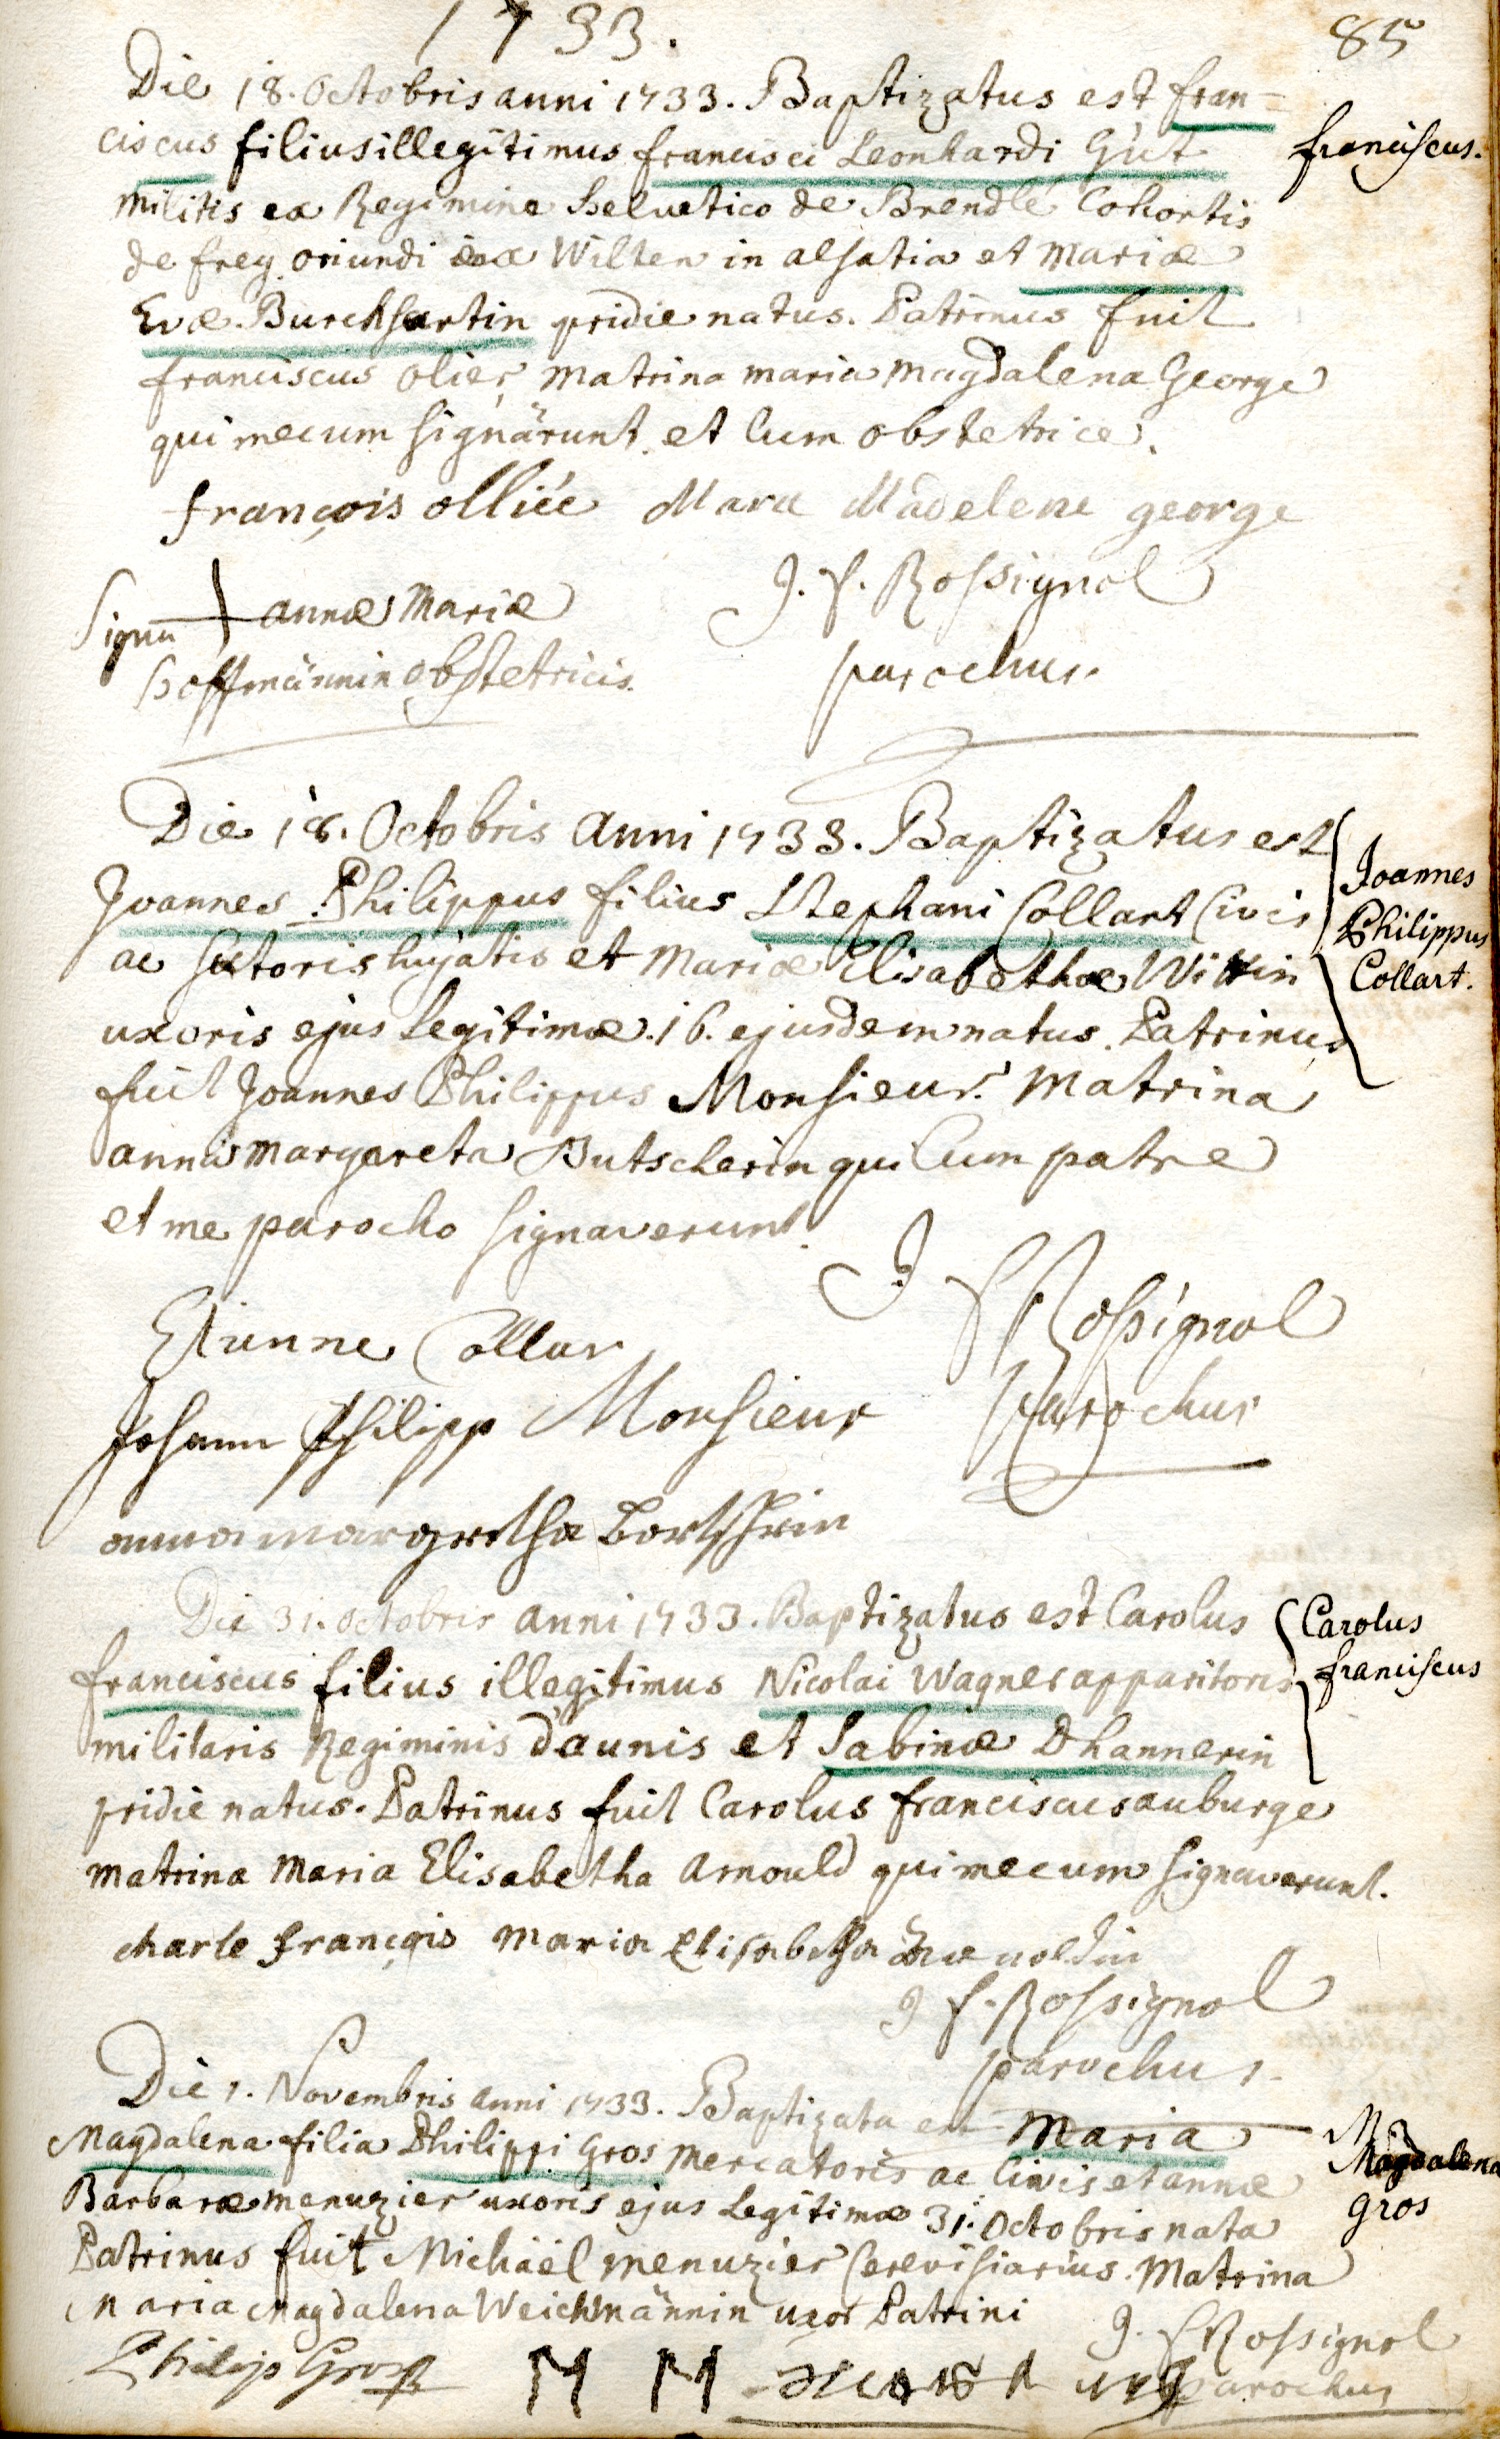 1733.
85
Die 18. Octobris anni 1733. Baptizatus est fran-
ciscus filius illegitimus francisci Leonhardi Gut
franciscus.
militis ex Regimine helvetico de Brendlé Cohortis
de freg oriundi Wilten in alsatia et Mariæ
Evæ Burckhartin pridie natus. Patrinus fuit
franciscus olier, Matrina maria magdalena George
qui mecum signârunt et cum obstetrice.
françois olliée Mara Madelene george
J. f. Rossignol
parochus.
Signu annæ Mariæ
hoffmännin obstetricis
Die 18. Octobris anni 1733. Baptizatus est
Joannes Philippus filius Stephani Collart Civis
ac sutoris hujatis et Mariæ Elisabethæ
Joannes
Philippus
Collart.
uxoris ejus legitimæ. 16. ejusdem natus. Patrinus
fuit Joannes Philippus Monsieur. Matrina
anna margareta Butscherin qui cum patre
et me parocho signaverunt.
J f Rossignol
Parochus
Etienne Collar
Johann Philipp Monsieur
anna margretha
Die 31. Octobris anni 1733. Baptizatus est Carolus
franciscus filius illegitimus Nicolai Wagner apparitoris
Carolus
franciscus
militaris Regiminis d'aunis et Sabinæ Dhannerin
pridie natus. Patrinus fuit Carolus franciscus auburge
matrina Maria Elisabetha Arnould qui mecum signaverunt.
charle françois Maria Elisabetha
J f. Rossignol
parochus.
Die 1. Novembris anni 1733. Baptizata est Maria
Magdalena filia Philippi Gros Mercatoris ac Civis et annæ
M
Magdalena
gros
Barbaræ menuzier uxoris ejus legitimæ 31. Octobris nata
Patrinus fuit Michäel menuzier Cerevisiarius. Matrina
Maria Magdalena Weichmännin uxor Patrini
Philips Gros
M M
J. f Rossignol
parochus